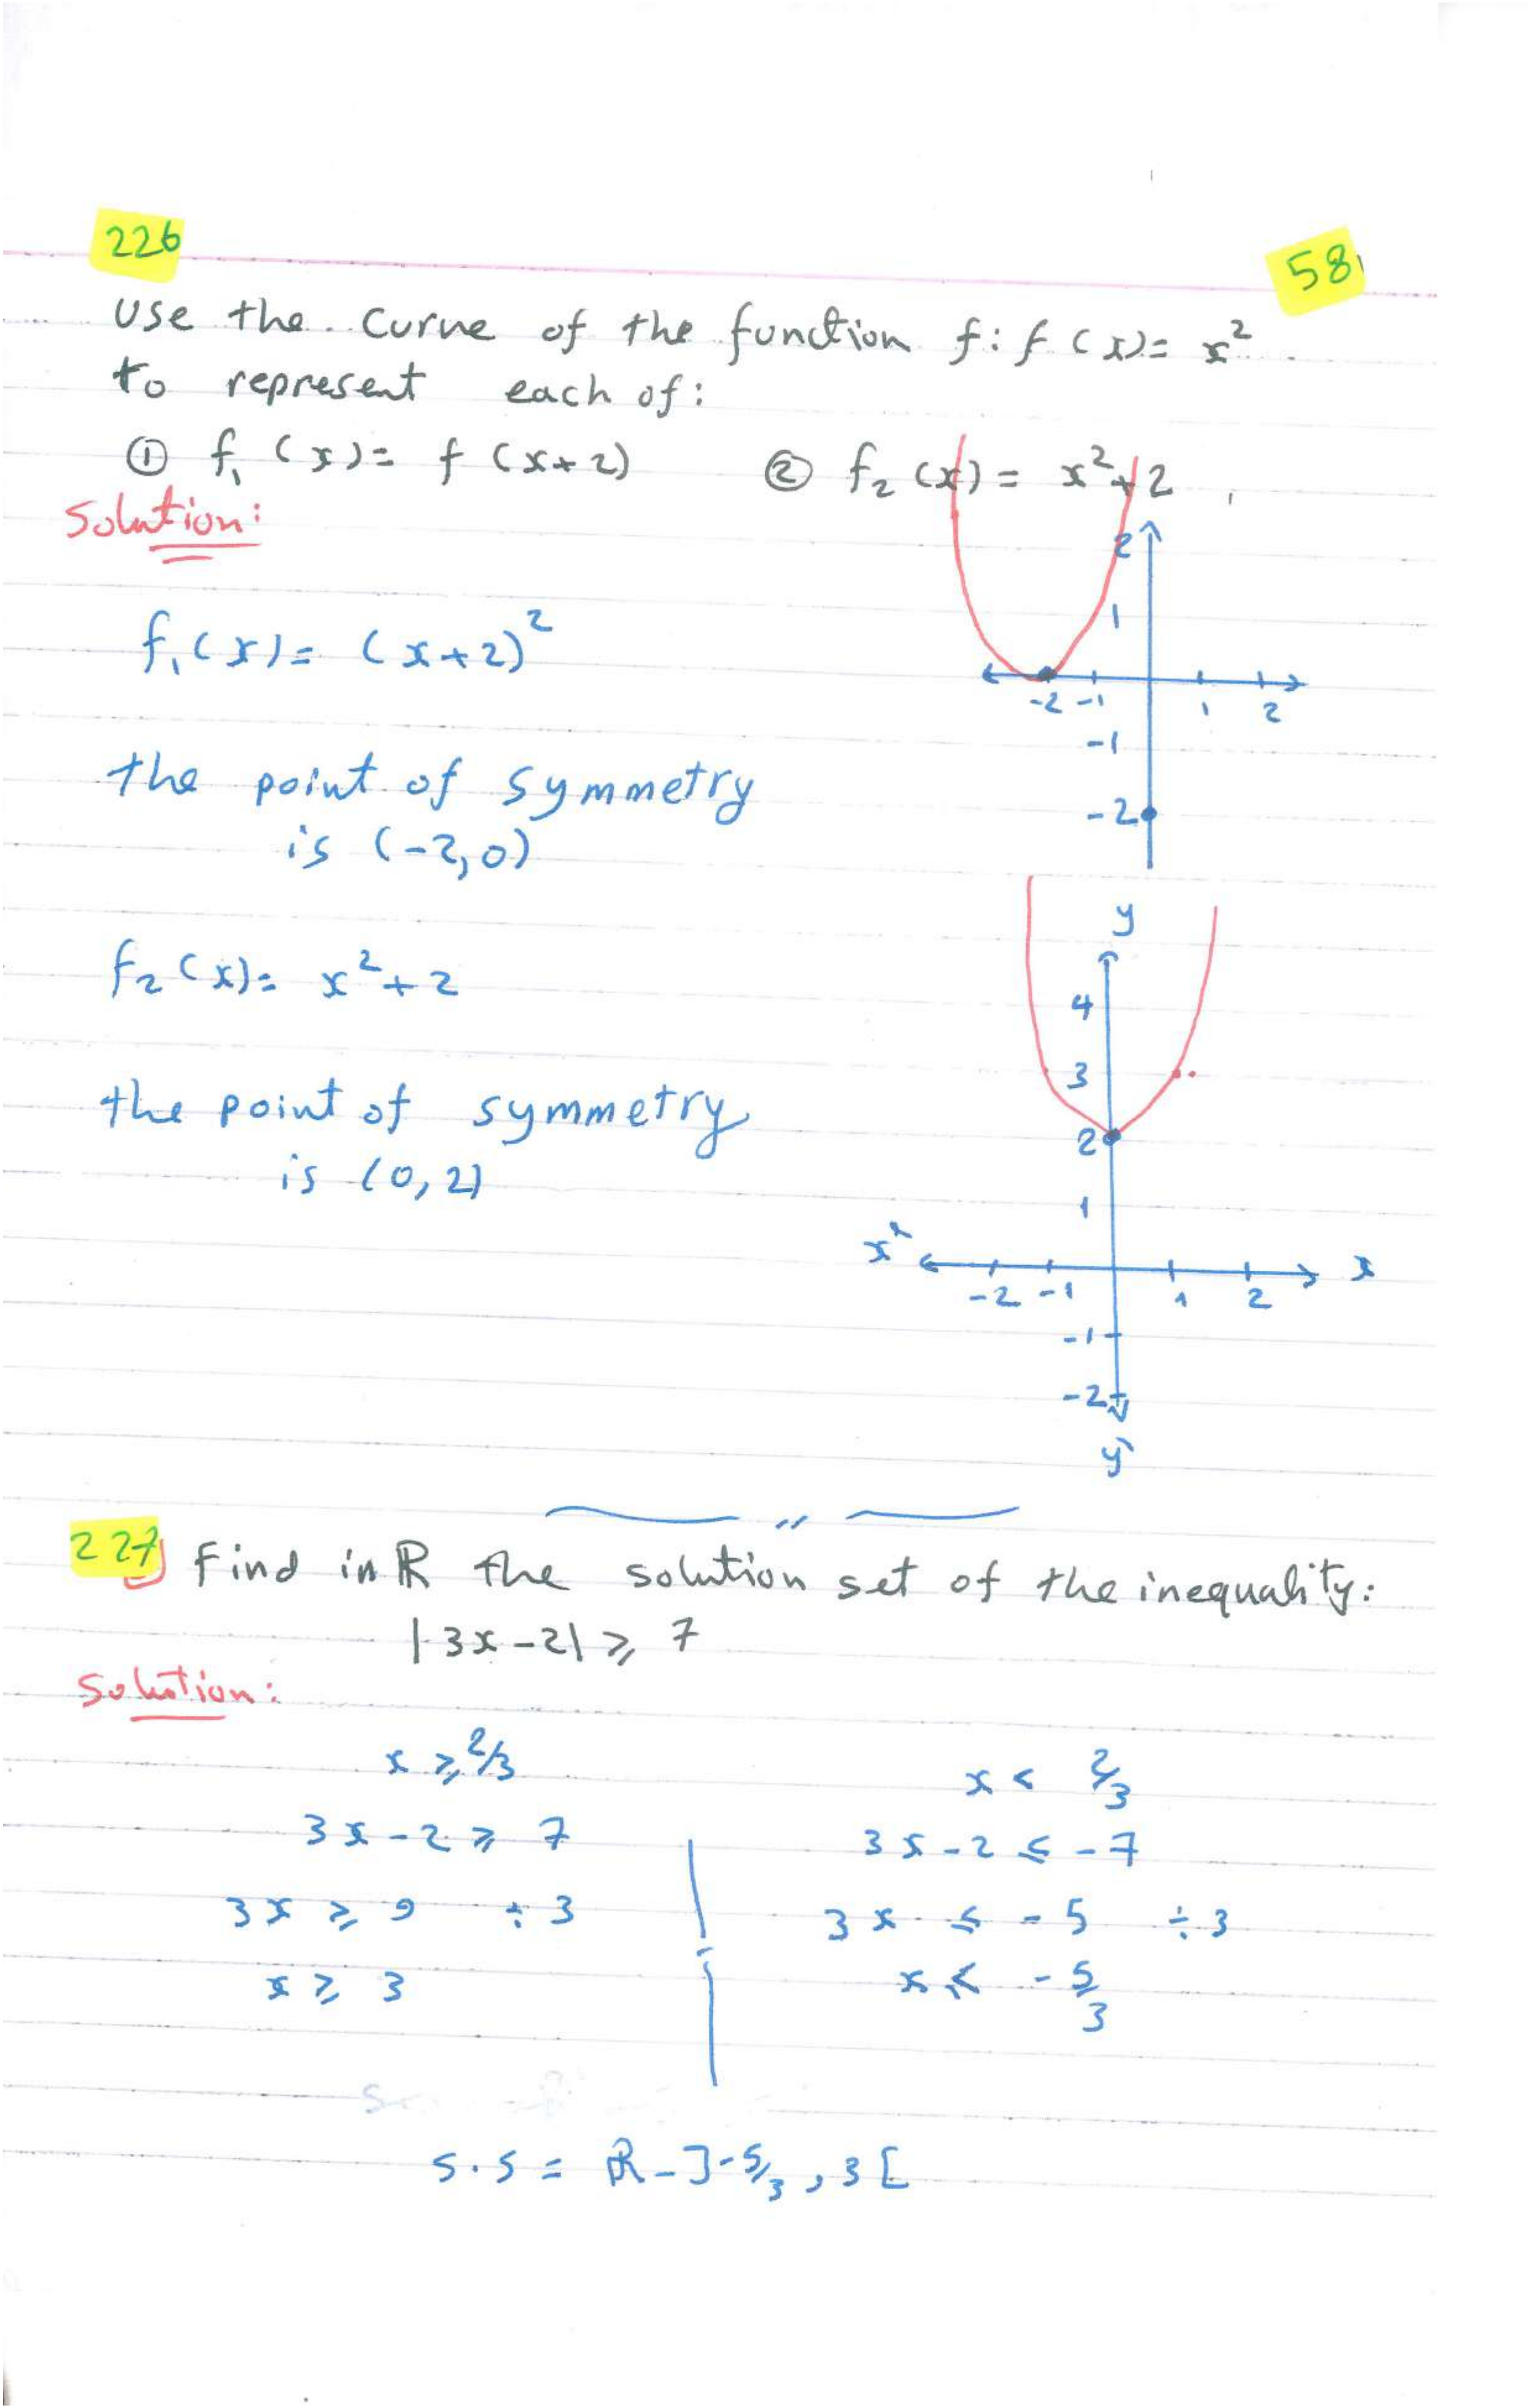 226
58
Use the curve of the function f: f(x) = x²
to represent each of:
① f₁(x) = f(x+2) ② f₂(x) = x²+2
Solution:
2
1
-2 -1 1 2
-1
-2
f₁(x) = (x+2)²
the point of symmetry
is (-2,0)
y
4
3
2
1
x' x
-2 -1 1 2
-1
-2
y'
f₂(x) = x²+2
the point of symmetry
is (0,2)
227 Find in ℝ the solution set of the inequality:
|3x-2| ⩾ 7
Solution:
x ⩾ 2/3 x < 2/3
3x-2 ⩾ 7 3x-2 ⩽ -7
3x ⩾ 9 ÷3 3x ⩽ -5 ÷3
x ⩾ 3 x ⩽ -5/3
S.S = ℝ-]-5/3, 3[